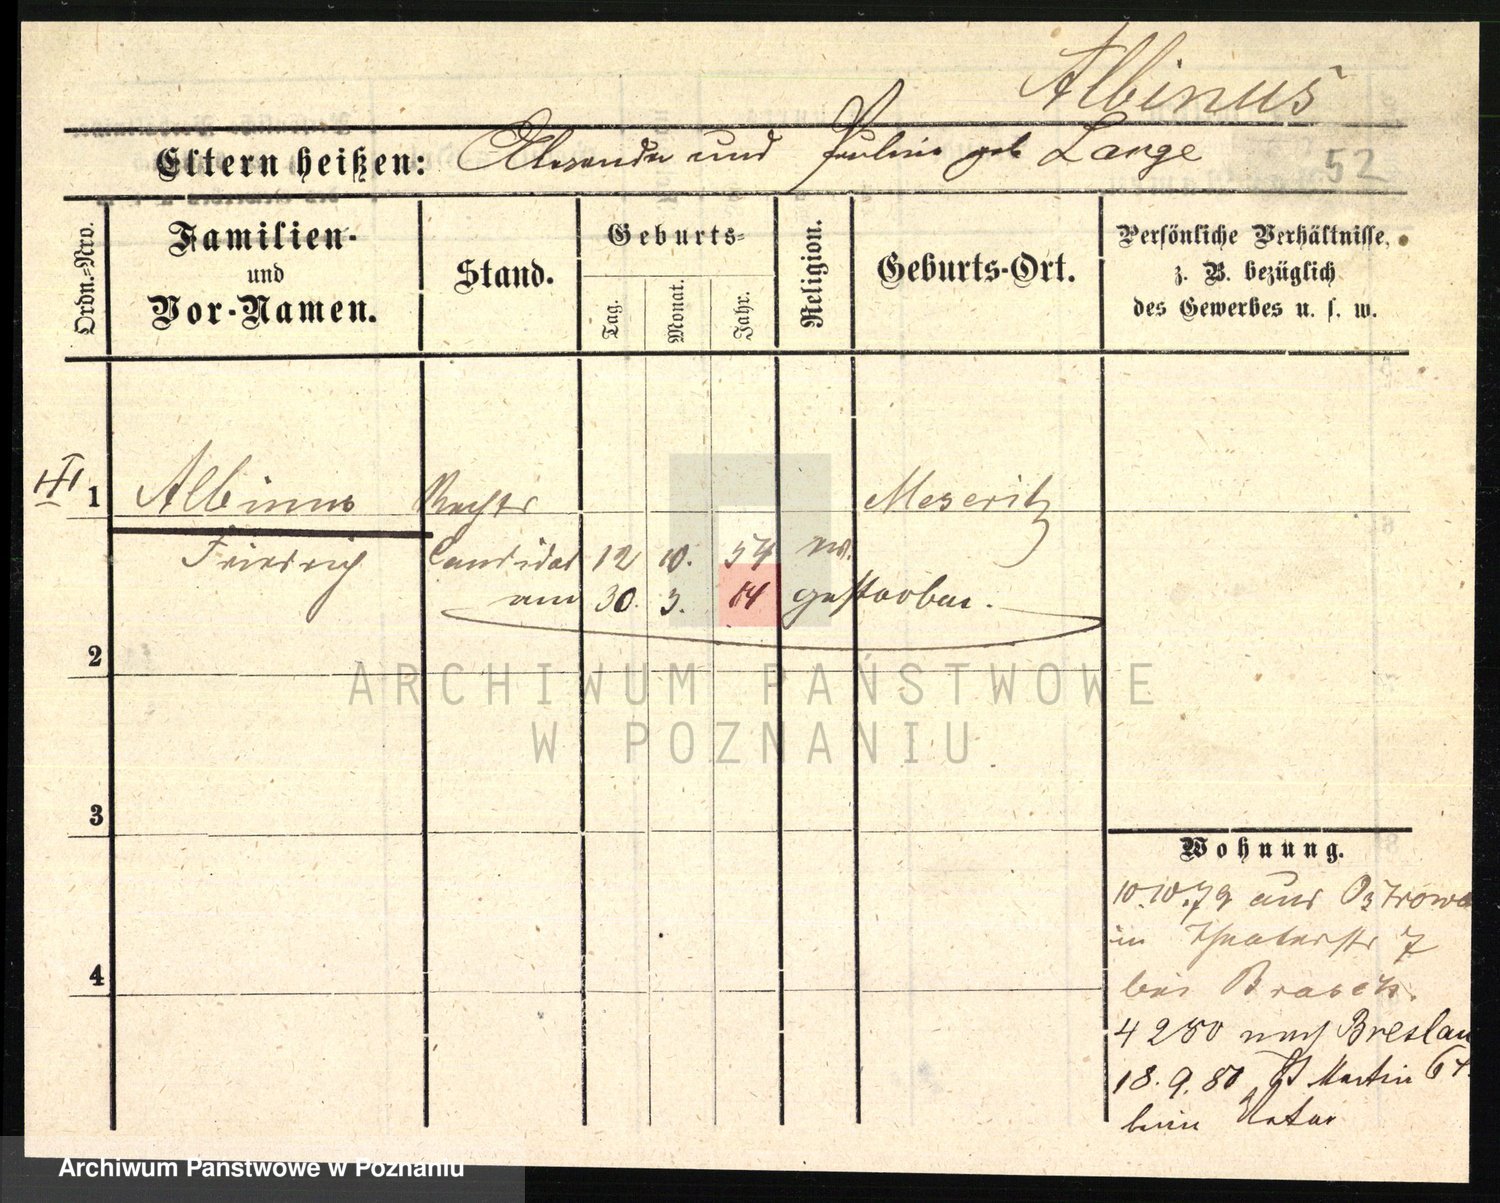 Albinus
Eltern heißen: Alexander und Pauline geb Lange
52
Ordn.=Nro.
Familien-
und
Vor-Namen.
Stand.
Geburts=
Tag.
Monat.
Jahr.
Religion.
Geburts-Ort.
Persönliche Verhältnisse,
z. B. bezüglich
des Gewerbes u. s. w.
1 Albinus Rechts Meseritz
Friedrich Candidat 12 10. 54 ev.
am 30. 3. 84 gestorben.
2
3
4
Wohnung.
10.10.79 aus Ostrowo
in Theaterstr 7
bei Brasch.
4 2 80 nach Breslau
18.9.80 St Martin 67.
beim Vater
ARCHIWUM PAŃSTWOWE
W POZNANIU
Archiwum Państwowe w Poznaniu